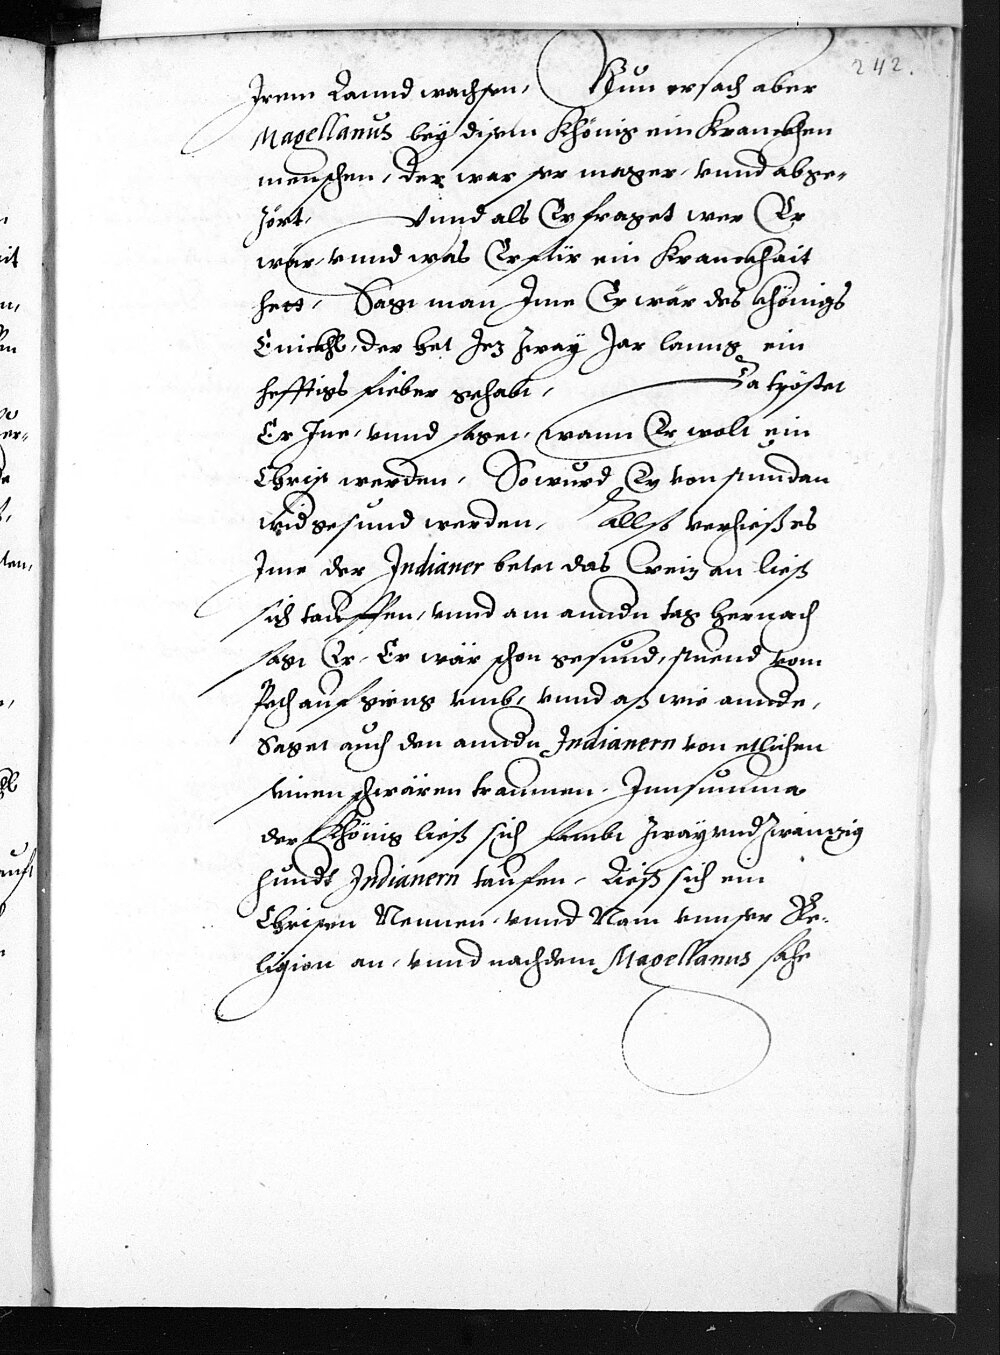 242.
Irem Lannd wachsen, Nun ersach aber
Magellanus bey disem Khönig ein Kranckhen
menschen, der war ser mager, vnnd abge-
zört, Vnnd als Er fraget wer Er
wär, vnnd was Er für ein Kranckhait
hett, Sagt man Ime Er wär des Khönigs
Enickhl, der het Jez zway Jar lanng ein
hefftigs fieber gehabt, Da tröstet
Er Ine, vnnd saget, wann Er wolt ein
Christ werden, So wurd Er von stundan
wid gesund werden, Allso verhieß es
Ime der Indianer betet das Creiz an ließ
sich tauffen, vnnd am anndn tag hernach
sagt Er, Er wär schon gesund, stuend vom
Peth auf gieng vmb, vnnd aß wie annde,
Saget auch den anndn Indianern von etlichen
seinen schwären traumen. Inn summa
der Khönig ließ sich sambt zway vnd zwainzig
hundt Indianern taufen, Ließ sich ein
Christen Nennen, vnnd Nam vnnser Re-
ligion an, vnnd nachdem Magellanus sahe